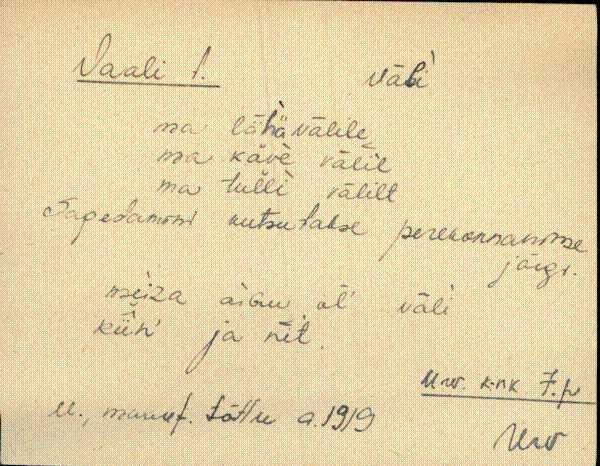 Vaali t. väli
ma lähä välile
ma käve välil
ma tulli välilt
Sagedamini kutsutakse perekonnanime
järgi.
meiza aigu ol' väli
kün' ja nit.
Urv. k-nk 7. p
U., manuf. Lõttu a. 1919
Urv